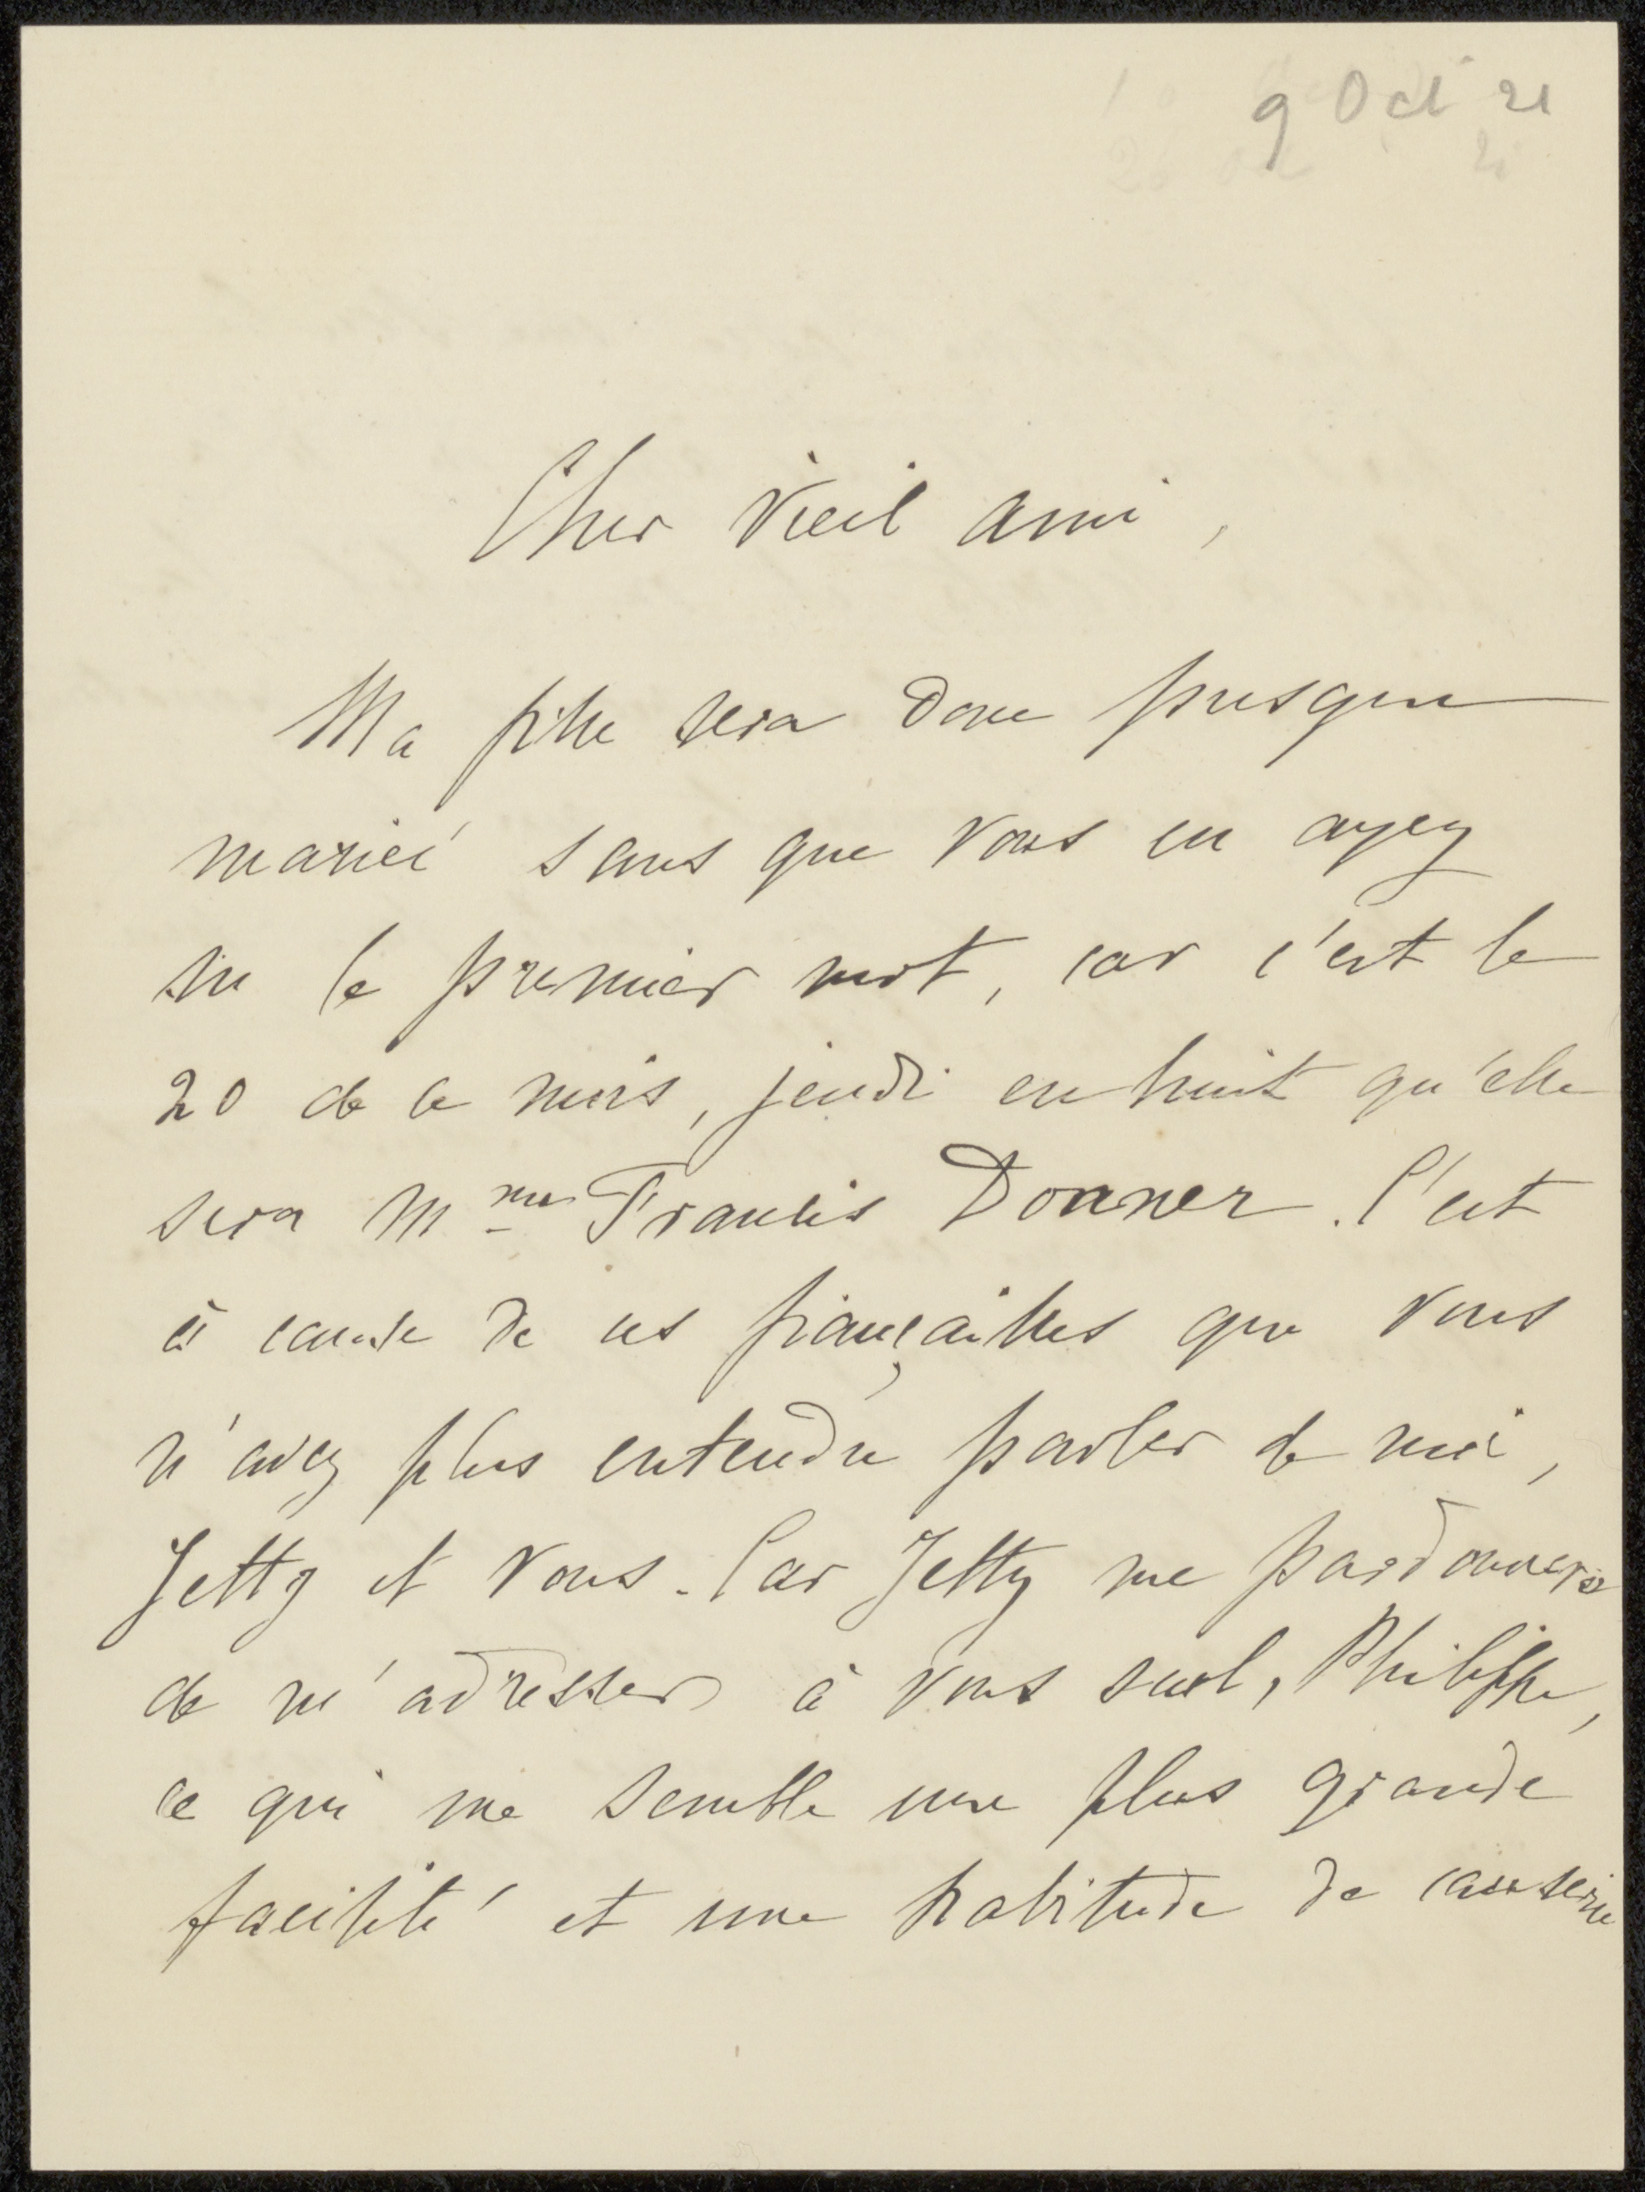 9 Oct 21
Cher vieil ami,
Ma fille sera donc presque
mariée sans que vous en ayez
su le premier mot, car c'est le
20 de ce mois, jeudi en huit qu'elle
sera Mme Francis Donner. C'est
à cause de ces fiançailles que vous
n'avez plus entendu parler de moi,
Jetty et vous. Car Jetty me pardonnera
de m'adresser à vous seul, Philippe,
ce qui me semble une plus grande
facilité et une habitude de causerie